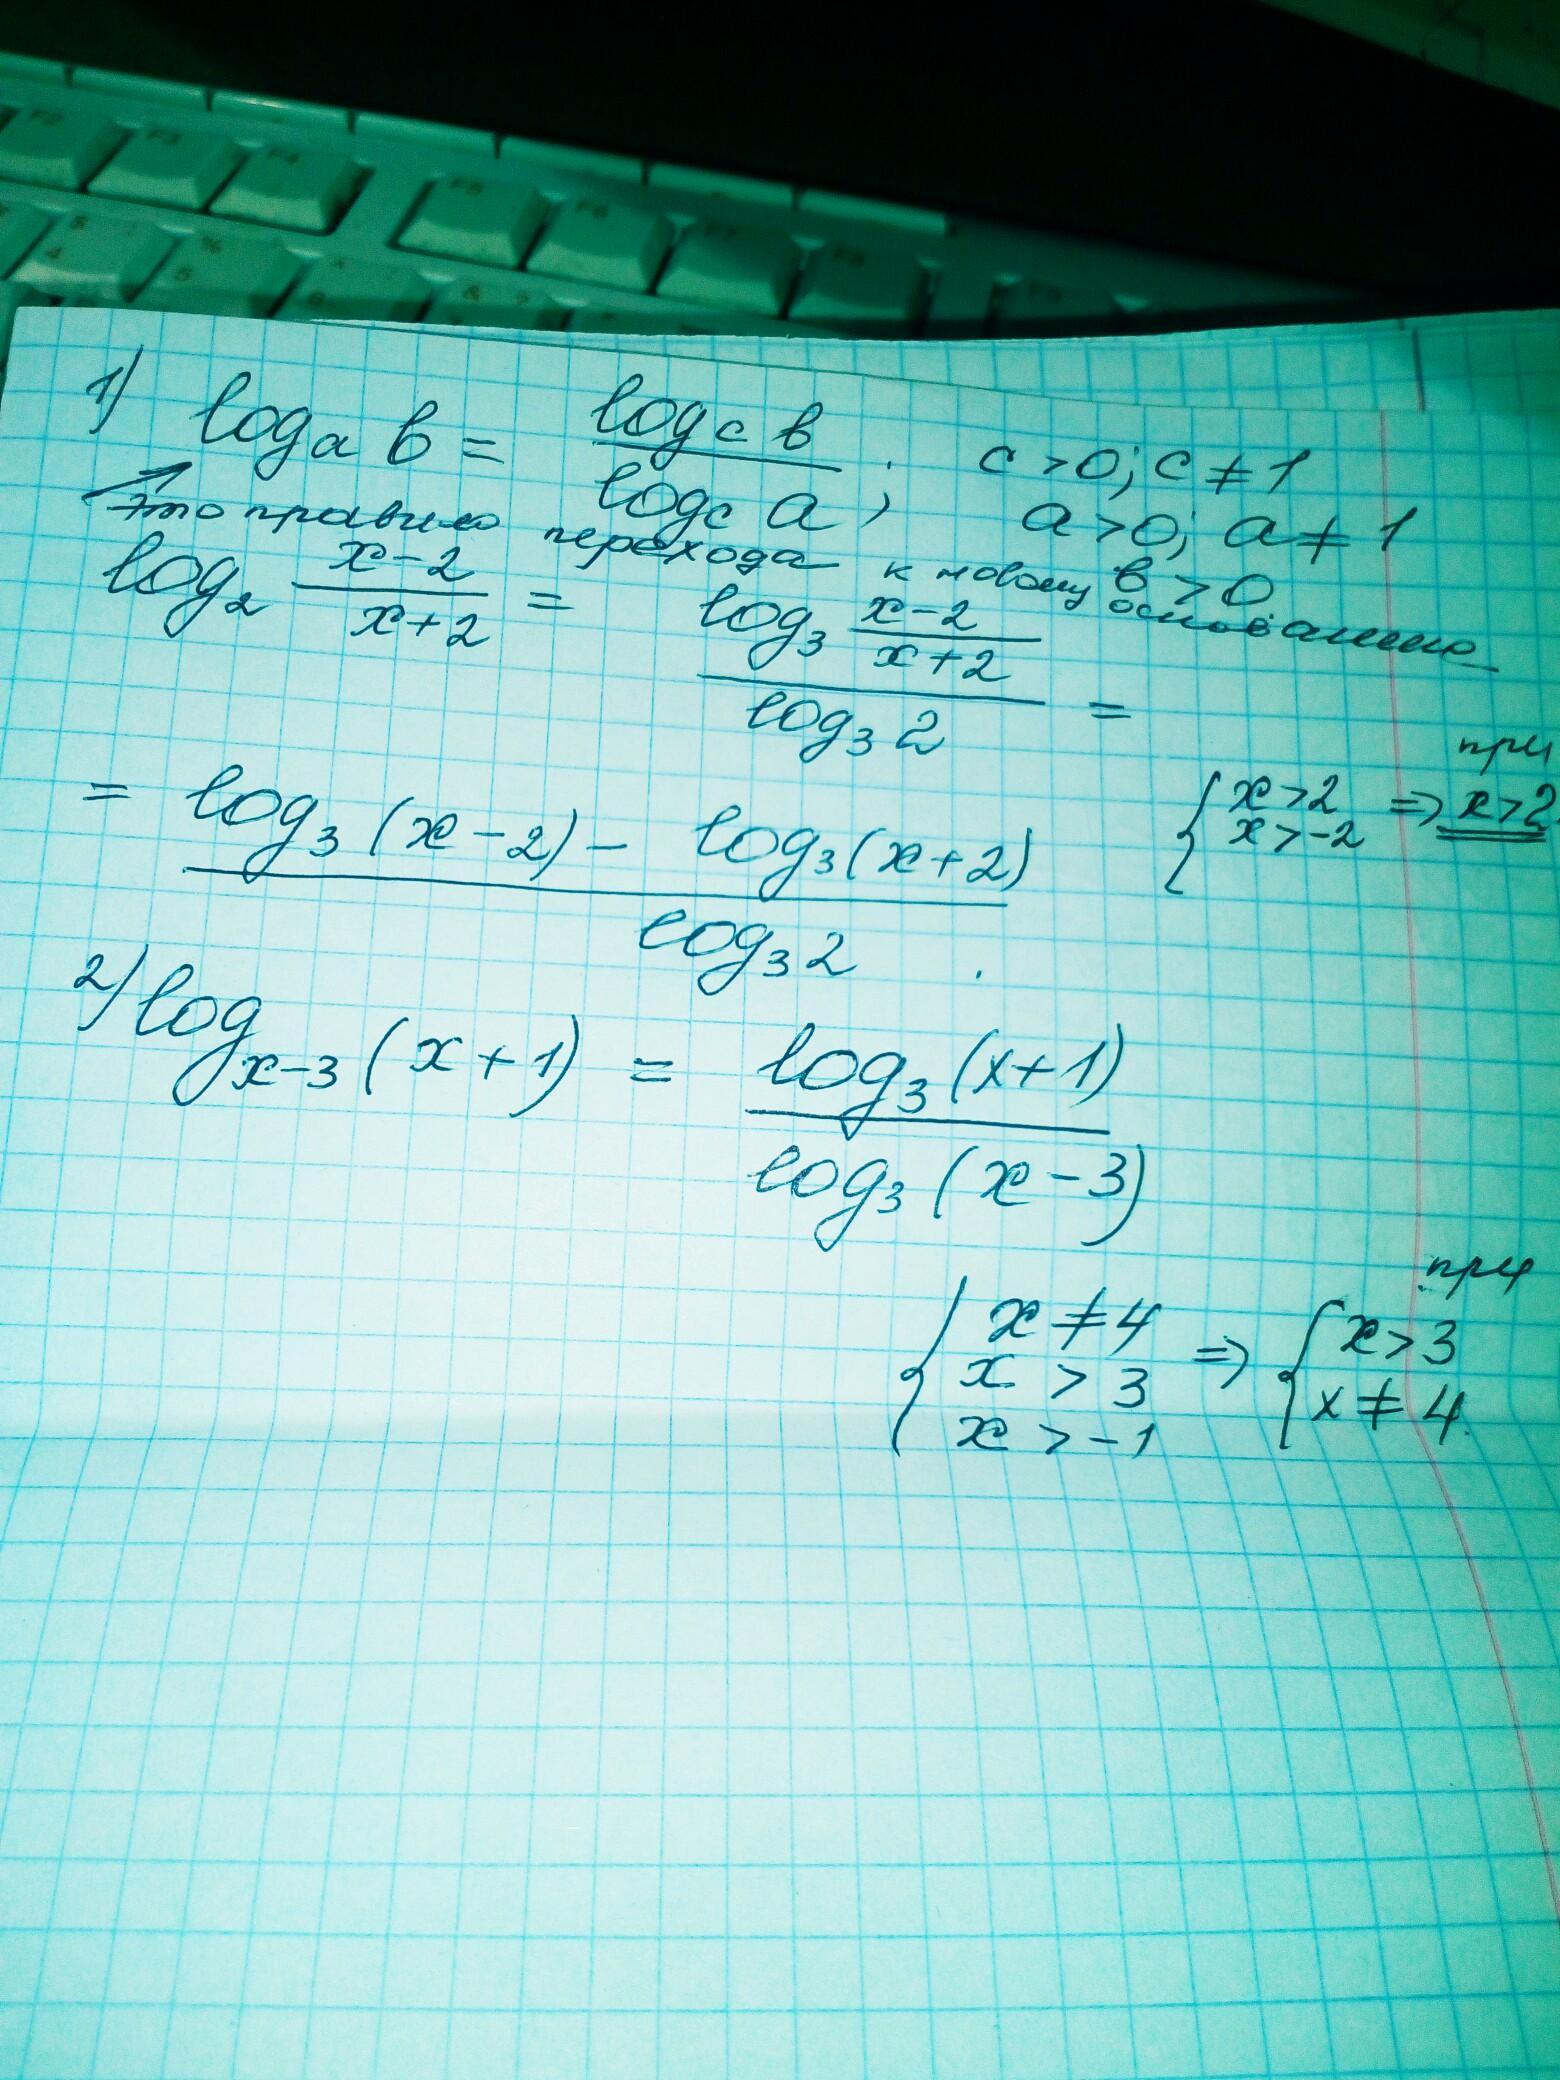 1) log_a b = log_c b / log_c a ; c > 0; c ≠ 1
a > 0; a ≠ 1
b > 0
это правило перехода к новому основанию
log_2 (x-2)/(x+2) = (log_3 (x-2)/(x+2)) / log_3 2 =
= (log_3 (x-2) - log_3 (x+2)) / log_3 2 .
при
{ x > 2 ⇒ x > 2
x > -2
2) log_{x-3} (x+1) = log_3 (x+1) / log_3 (x-3)
при
{ x ≠ 4 ⇒ { x > 3
x > 3
x > -1 x ≠ 4.
F2 F3 F4 F5 F6 F7 F8
$ 4 % 5 6 & 7